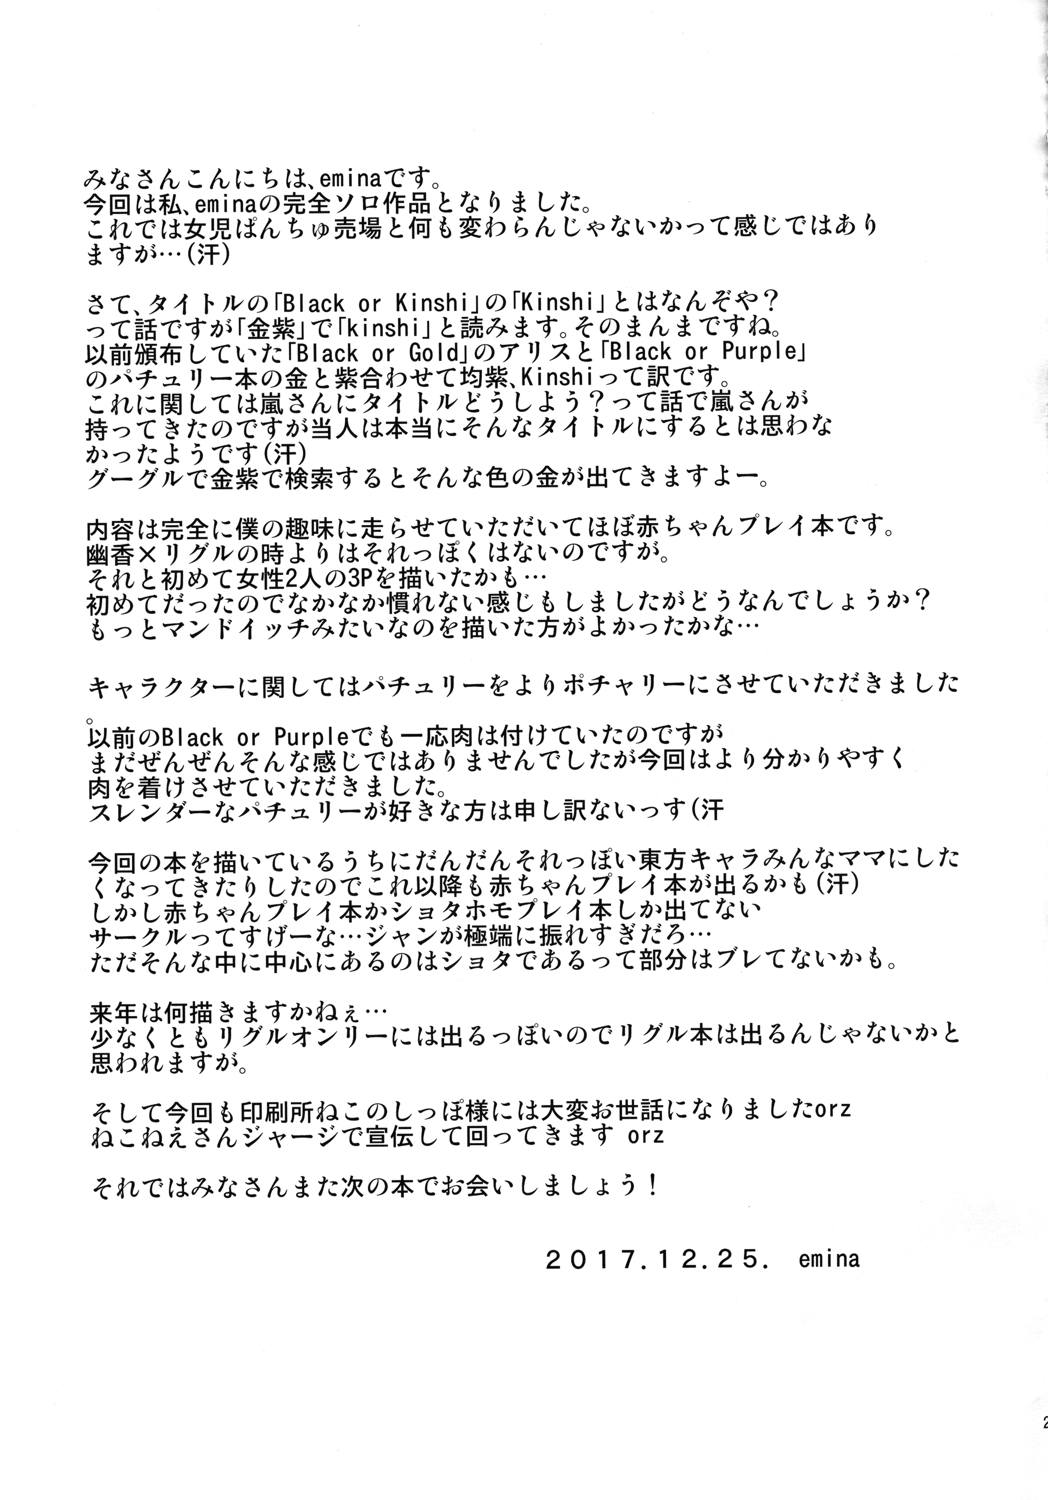 みなさんこんにちは、eminaです。
今回は私、eminaの完全ソロ作品となりました。
これでは女児ぱんちゅ売場と何も変わらんじゃないかって感じではあり
ますが…(汗)
さて、タイトルの「Black or Kinshi」の「Kinshi」とはなんぞや？
って話ですが「金紫」で「kinshi」と読みます。そのまんまですね。
以前頒布していた「Black or Gold」のアリスと「Black or Purple」
のパチュリー本の金と紫合わせて均紫、Kinshiって訳です。
これに関しては嵐さんにタイトルどうしよう？って話で嵐さんが
持ってきたのですが当人は本当にそんなタイトルにするとは思わな
かったようです(汗)
グーグルで金紫で検索するとそんな色の金が出てきますよー。
内容は完全に僕の趣味に走らせていただいてほぼ赤ちゃんプレイ本です。
幽香×リグルの時よりはそれっぽくはないのですが。
それと初めて女性2人の3Pを描いたかも…
初めてだったのでなかなか慣れない感じもしましたがどうなんでしょうか？
もっとマンドイッチみたいなのを描いた方がよかったかな…
キャラクターに関してはパチュリーをよりポチャリーにさせていただきました
。
以前のBlack or Purpleでも一応肉は付けていたのですが
まだぜんぜんそんな感じではありませんでしたが今回はより分かりやすく
肉を着けさせていただきました。
スレンダーなパチュリーが好きな方は申し訳ないっす(汗
今回の本を描いているうちにだんだんそれっぽい東方キャラみんなママにした
くなってきたりしたのでこれ以降も赤ちゃんプレイ本が出るかも(汗)
しかし赤ちゃんプレイ本かショタホモプレイ本しか出てない
サークルってすげーな…ジャンが極端に振れすぎだろ…
ただそんな中に中心にあるのはショタであるって部分はブレてないかも。
来年は何描きますかねぇ…
少なくともリグルオンリーには出るっぽいのでリグル本は出るんじゃないかと
思われますが。
そして今回も印刷所ねこのしっぽ様には大変お世話になりましたorz
ねこねえさんジャージで宣伝して回ってきます orz
それではみなさんまた次の本でお会いしましょう！
２０１７.１２.２５.　emina
2